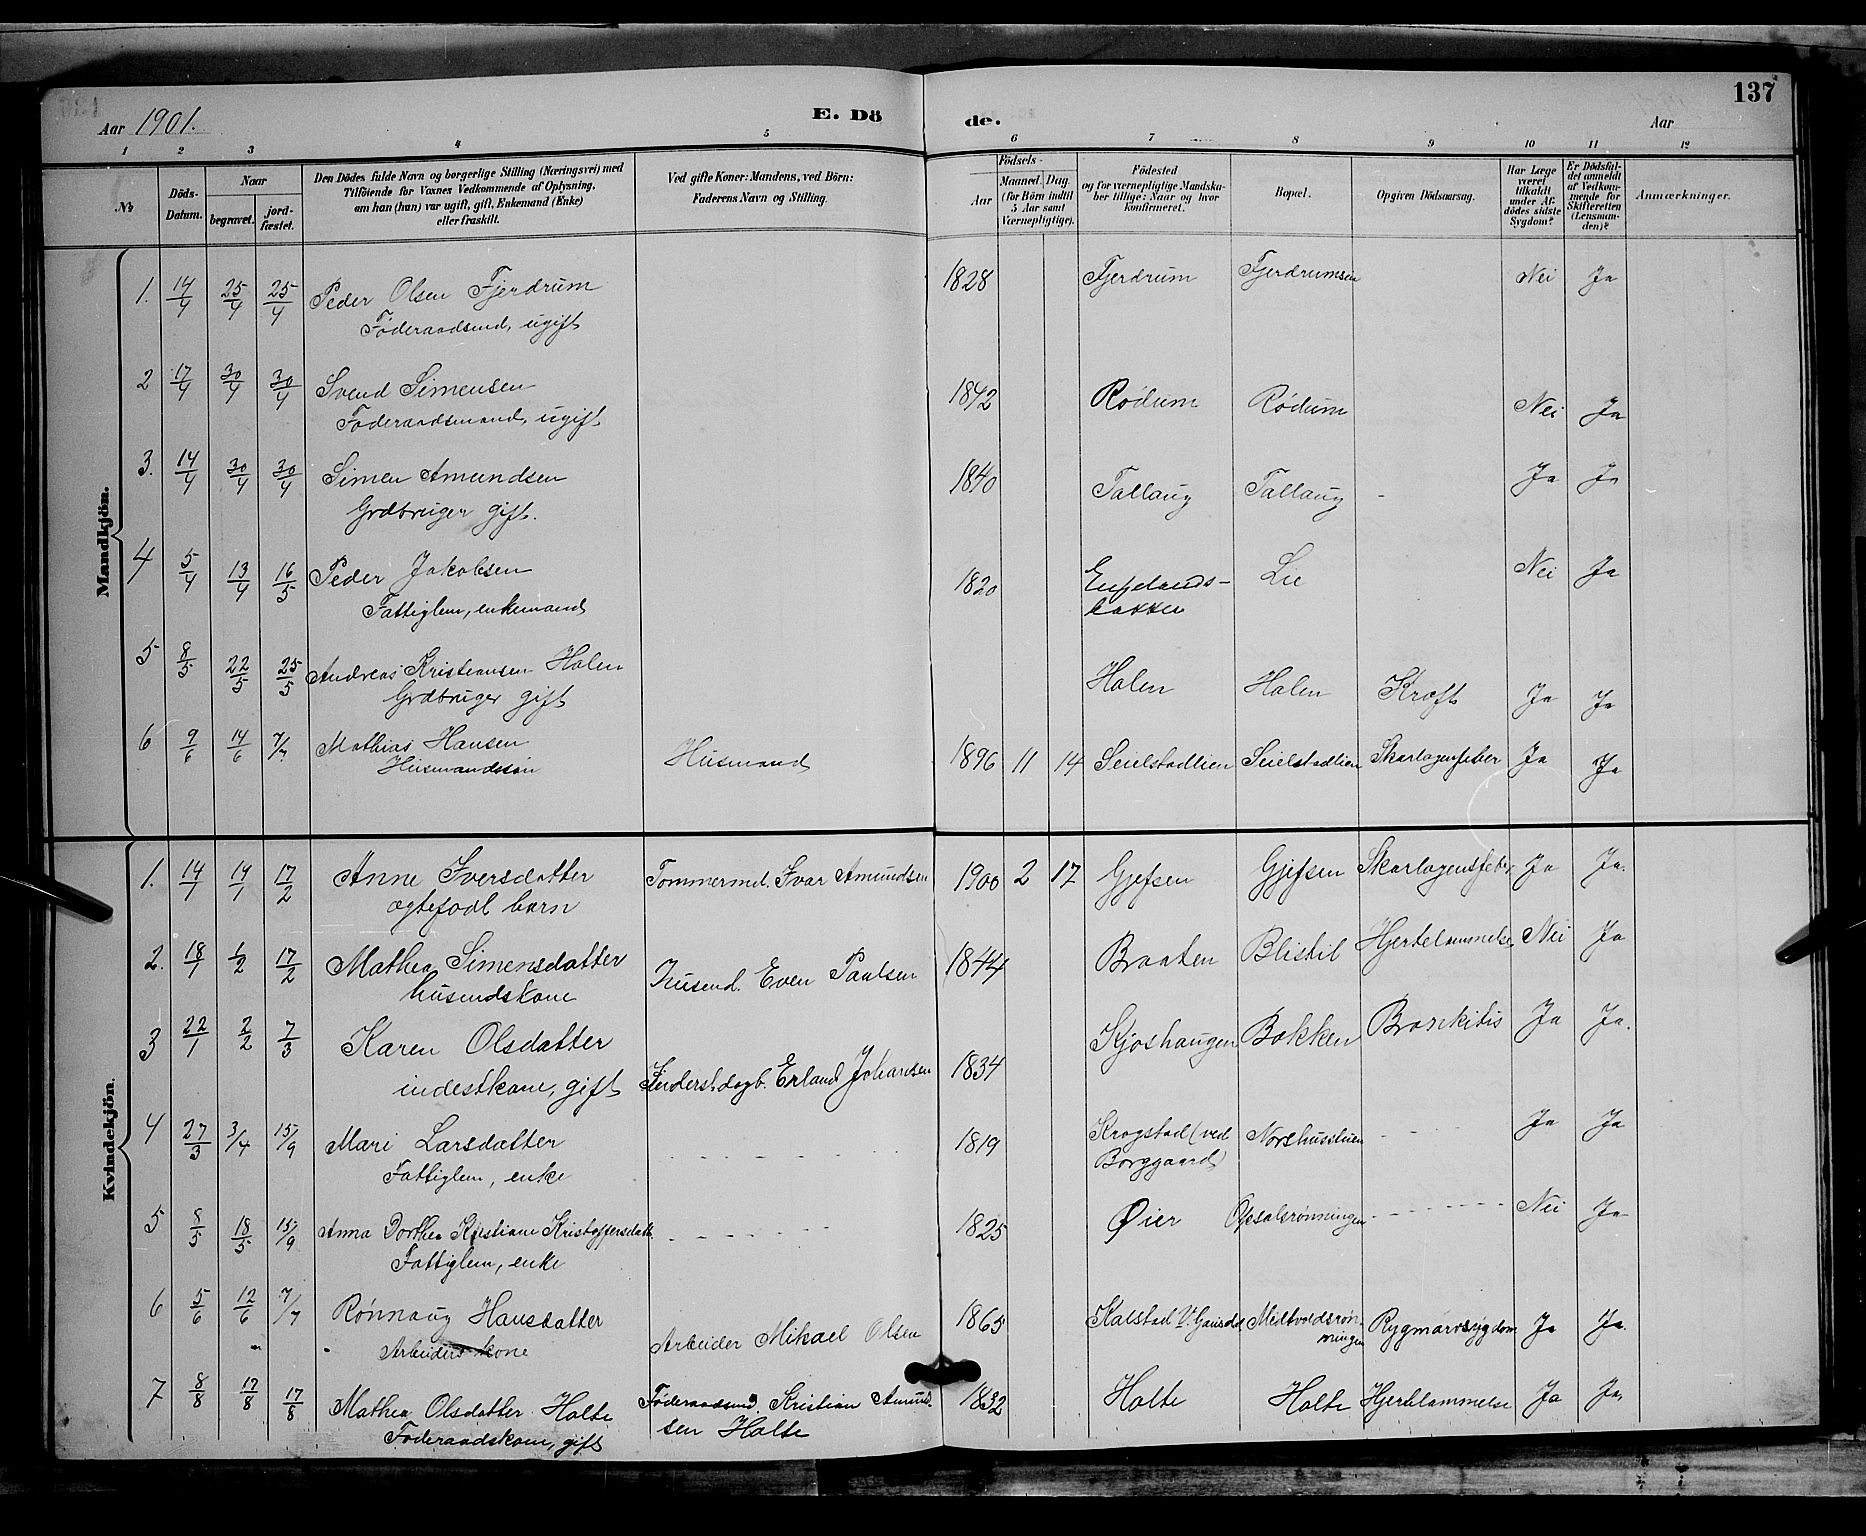 Aar 1901. E. Dö de. Aar 137
1 2 3 4 5 6 7 8 9 10 11 12
№ Döds-Datum. Naar begravet. jordfæstet. Den Dödes fulde Navn og borgerlige Stilling (Næringsvei) med Tilföiende for Voxnes Vedkommende af Oplysning, om han (hun) var ugift, gift, Enkemand (Enke) eller fraskilt. Ved gifte Koner: Mandens, ved Börn: Faderens Navn og Stilling. Födsels- Aar Maaned. Dag. (for Börn indtil 5 Aar samt Værnepligtige). Födested og for værnepligtige Mandskaber tillige: Naar og hvor konfirmeret. Bopæl. Opgiven Dödsaarsag. Har Læge været tilkaldt under Afdödes sidste Sygdom? Er Dödsfaldet anmeldt af Vedkommende for Skifteretten (Lensmanden)? Anmærkninger.
Mandkjön.
1. 14/4 25/4 25/4 Peder Olsen Fjerdrum 1828 Fjerdrum Fjerdrumsen Nei Ja
Föderaadsmd, ugift
2 17/4 30/4 30/4 Svend Simensen 1842 Rödum Rödum Nei Ja
Föderaadsmand, ugift
3. 14/4 30/4 30/4 Simen Amundsen 1840 Tallaug Tallaug - Ja Ja
Grdbruger gift.
4 5/4 13/4 16/5 Peder Jakobsen 1820 Lie Nei Ja
Fattiglem, enkemand
5 8/5 22/5 25/5 Andreas Kristiansen Holen Holen Holen Kræft Ja Ja
Grdbruger gift
6 9/6 14/6 7/7 Mathias Hansen Husmand 1896 11 14 Seielstadlien Seielstadlien Skarlagensfeber Ja Ja
Husmandssön
Kvindekjön.
1. 14/1 14/1 17/2 Anne Iversdatter Tømmermd. Ivar Amundsen 1900 2 17 Gjefsen Gjefsen Skarlagensfeber Ja Ja.
ægtefødt barn
2. 18/1 1/2 17/2 Mathea Simensdatter Husmd. Even Paulsen 1844 Braaten Blistil Hjertelammelse Nei Ja
husmdskone
3 22/1 2/2 7/3 Karen Olsdatter Erland Johansen 1834 Kjoshaugen Bakken Bronkitis Ja Ja.
inderstkone, gift
4 27/3 3/4 15/9 Mari Larsdatter 1819 Krogstad (ved Norshusstuen Ja Ja
Fattiglem, enke Borggaard)
5 8/5 18/5 15/9 Anna Dorthea Kristiane Kristoffersdatt. 1825 Øier Opsalsrønningen Nei Ja
Fattiglem, enke
6 5/6 12/6 7/7 Rønnaug Hansdatter Arbeider Mikael Olsen 1865 Kalstad V. Gausdal Ja Ja.
Arbeiders kone Rygmarvssygdom
7 8/8 17/8 17/8 Mathea Olsdatter Holte Føderaadsmd. Kristian Amund- 1832 Holte Holte Hjertelammelse Ja Ja.
Føderaadskone, gift sen Holte